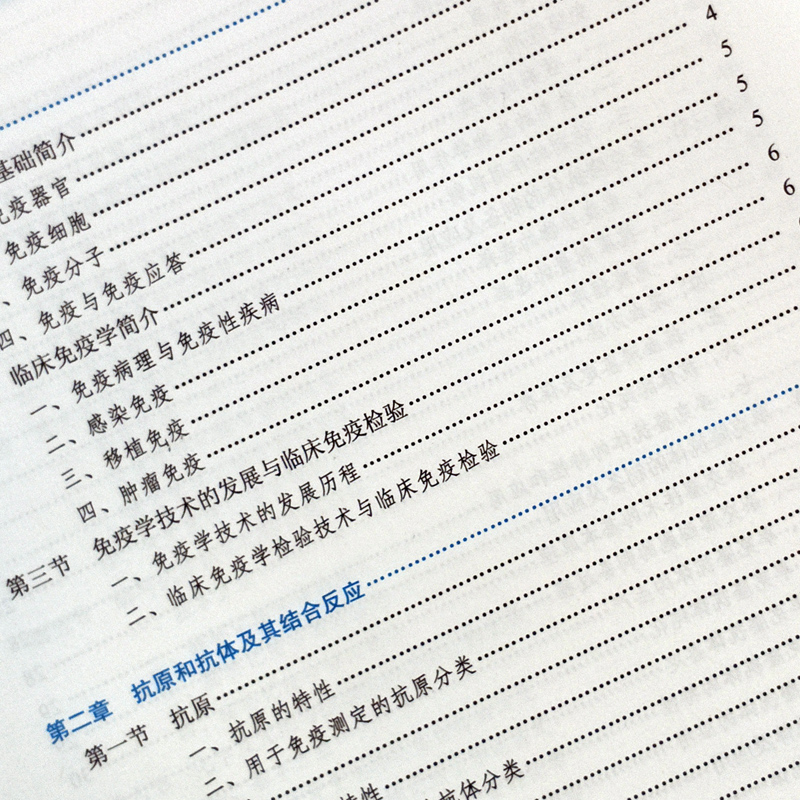 基础简介……
免疫器官……
免疫细胞……
、免疫分子……
四、免疫与免疫应答……4
临床免疫学简介……5
一、免疫病理与免疫性疾病……5
二、感染免疫……5
三、移植免疫……6
四、肿瘤免疫……6
第三节 免疫学技术的发展与临床免疫检验……
一、免疫学技术的发展历程……
二、临床免疫学检验技术与临床免疫检验……
第二章 抗原和抗体及其结合反应……
第一节 抗原……
一、抗原的特性……
二、用于免疫测定的抗原分类……
特性……
抗体分类……